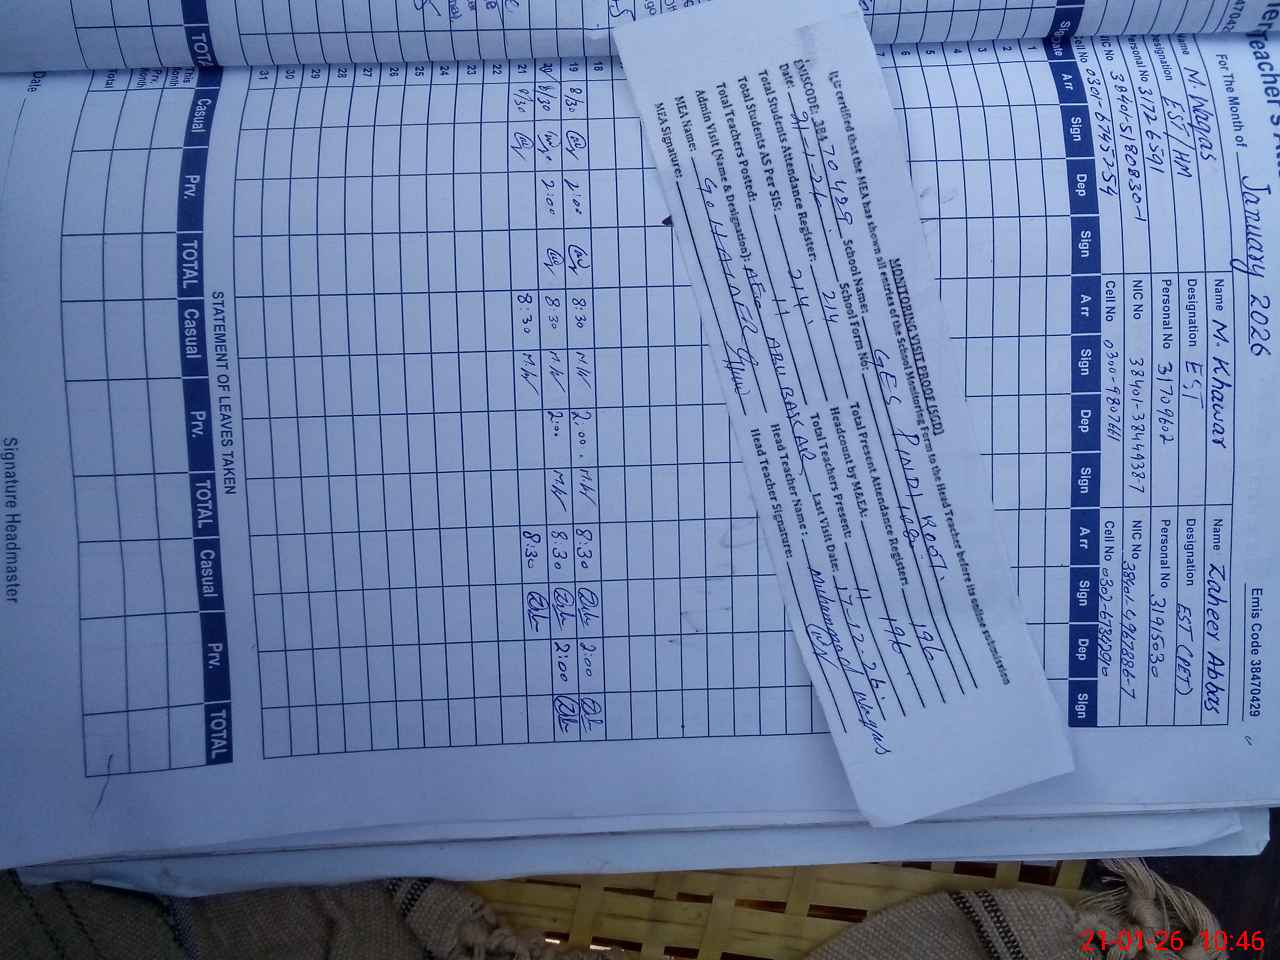 Teacher's
For The Month of January 2026
Emis Code 38470429
Name M. Waqas
Name M. Khawar
Name Zaheer Abbas
Designation EST/HM
Designation EST
Designation EST (PET)
Personal No 31726591
Personal No 31709602
Personal No 31915030
NIC No 38401-5180830-1
NIC No 38401-3844938-7
NIC No 38401-4967886-7
Cell No 0301-6745254
Cell No 0300-9807661
Cell No 0302-6732290
Date Arr Sign Dep Sign Arr Sign Dep Sign Arr Sign Dep Sign
1
2
3
4
5
6
7
MONITORING VISIT PROOF (SGD)
It is certified that the MEA has shown all entries of the School Monitoring Form to the Head Teacher before its online submission
EMISCODE: 38470429 School Name: GES PINDI Koot.
Date: 21-1-26. School Form No: 188
Total Students Attendance Register: 214 Total Present Attendance Register: 196
Total Students AS Per SIS: 214. Headcount by M&EA: 196
Total Teachers Posted: 11 Total Teachers Present: 11
Admin Visit (Name & Designation): ABU BAKAR, Last Visit Date: 17-12-26.
MEA Name: G. HAIDER Head Teacher Name: Muhammad Waqas
MEA Signature: Head Teacher Signature:
18
19 8/30 2:00 8:30 M.W 2:00. M.W 8:30 2:00
20 8/30 2:00 8:30 M.W 2:00 M.W 8:30 2:00
21 8/30 8:30 M.W 8:30
22
23
24
25
26
27
28
29
30
31
STATEMENT OF LEAVES TAKEN
Casual Prv. TOTAL Casual Prv. TOTAL Casual Prv. TOTAL
This Month
Prv. Month
Total
Date
Signature Headmaster
21-01-26 10:46